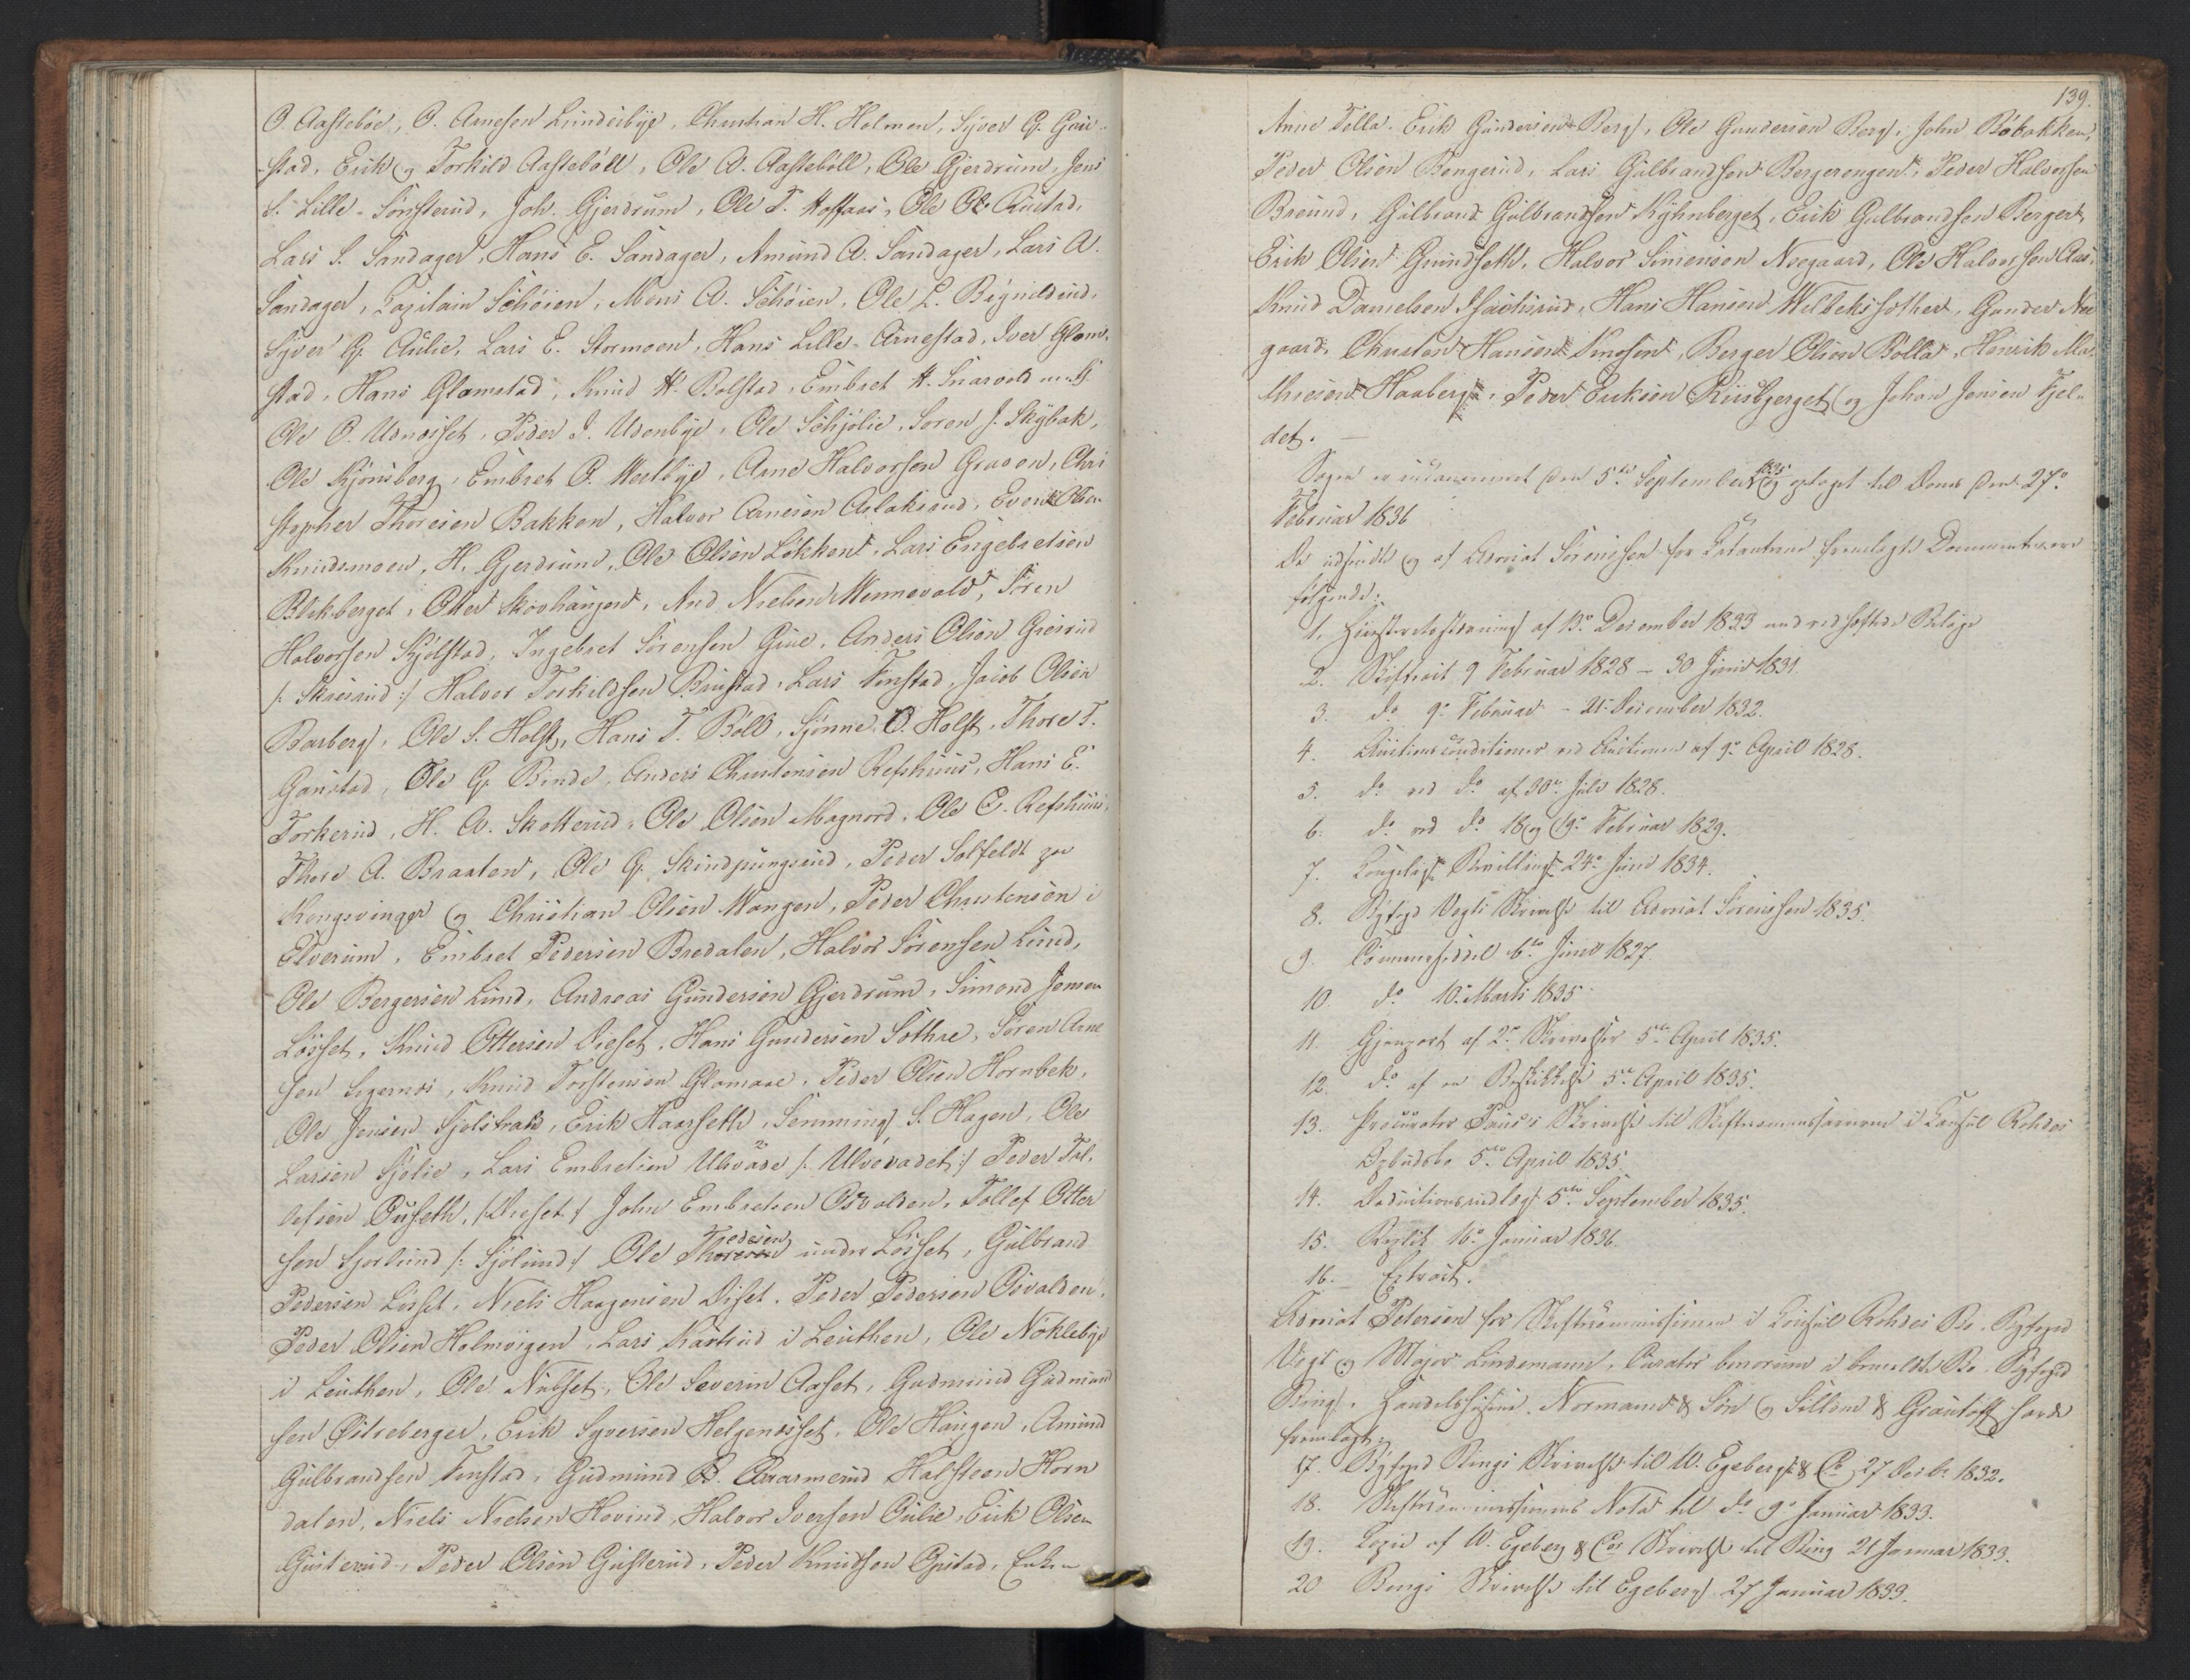 O. Aastebøe, O. Arnesen Lunderbye, Christian H. Holmen, Syver G. Gau-
stad, Erik og Torkild Aastebøll, Ole A. Aastebøll, Ole Gjerdrum, Jens
S. Lille-Sønsterud, Joh. Gjerdrum, Ole T. Hoffaas, Ole Ol. Rustad,
Lars S. Sandager, Hans E. Sandager, Amund A. Sandager, Lars A.
Sandager, Capitain Schøien, Mons A. Schøien, Ole L. Bøgnildrud,
Syver G. Aulie, Lars E. Stormoen, Hans Lille-Arnestad, Iver Glom-
stad, Hans Glomstad, Knud H. Bolstad, Embret H. Snarvold
Ole O. Udnæsset, Peder I. Udenbye, Ole Schjølie, Søren J. Skybak,
Ole Kjønsberg, Embret O. Westbye, Arne Halvorsen Graven, Chri
stopher Thoresen Bakken, Halvor Arnesen Aslaksrud, Even Olsen
Knudsmoen, H. Gjerdrum, Ole Olsen Løkken, Lars Engebretsen
Blekberget, Otter Skovhaugen, And. Nielsen Wennevold, Søren
Halvorsen Kjølstad, Ingebret Sørensen Grue, Anders Olsen Greisrud
/: Skaresrud :/ Halvor Torkildsen Brustad, Lars Finstad, Jacob Olsen
Barberg, Ole S. Holst, Hans T. Bøll, Sjønne O. Holst, Thore T.
Gaustad, Ole G. Binde, Anders Christensen Refshuus, Hans E.
Torkerud, H. A. Skotterud, Ole Olsen Magnord, Ole C. Refshuus,
Thore A. Braaten, Ole G. Skindpungrud, Peder Solfeldt paa
Kongsvinger og Christian Olsen Wangen, Peder Christensen i
Elverum, Embret Pedersen Bredalen, Halvor Sørensen Lund,
Ole Bergersen Lund, Andreas Gundersen Gjerdrum, Simond Jensen
Løsset, Knud Ottersen Dieset, Hans Gundersen Sothre, Søren Arne
sen Segernæs, Knud Torstensen Glomaae, Peder Olsen Hornbek,
Ole Jensen Sjolstrak, Erik Haarseth, Semming S. Hagen, Ole
Larsen Sjølie, Lars Embretsen Ulvvade /: Ulvevadet :/ Peder Tol-
lefsen Øuseth, /Dieset/ John Embretsen Osvolden, Tollef Otter
sen Sjorlund /: Sjølund :/ Ole Thoresen Pedersen under Løsset, Gulbrand
Pedersen Løsset, Niels Haagensen Diset, Peder Pedersen Osvalden,
Peder Olsen Holmøigen, Lars Karterud i Leuthen, Ole Nøklebye
i Leuthen, Ole Nubset, Ole Severin Aaset, Gudmund Gudmund
sen Øitreberger, Erik Syversen Helgenæsset, Ole Haugen, Amund
Gulbrandsen Finstad, Gudmund Aarmerud Halsteen Horn
dalen, Niels Nielsen Hovind, Halvor Iversen Øulie, Erik Olsen
Gusterud, Peder Olsen Gusterud, Peder Knudsen Opstad, Enken
139.
Anne Tolla. Erik Gundersen Berg, Ole Gundersen Berg, John Røbakken,
Peder Olsen Bongerud, Lars Gulbrandsen Bergerengen, Peder Halvorsen
Breund, Gulbrand Gulbrandsen Kyhnberget, Erik Gulbrandsen Berger,
Erik Olsen Grundseth, Halvor Simensen Noegaard, Ole Halvorsen Aas,
Knud Danielsen Isachsrud, Hans Hansen Welbekssother, Gunder Noe
gaard, Christen Hansen Smosen, Berger Olsen Bolla, Henrik Ma-
thiesen Haaberg, Peder Eriksen Riisbjerget og Johan Jensen Fjel-
det. —
Sagen er indkommet den 5te September 1835 og optaget til Doms den 27de
Februar 1836
De udstedte og af Advocat Sørenssen for Citanterne fremlagte Documenter ere
følgende:
1. Høiesteretsstevning af 13de December 1833 med vedhæftede Bilage
2. Skifteact 9 Februar 1828 – 30 Juni 1831.
3. do 9de Februar – 21de December 1832.
4. Auctionsconditioner ved Auctionen af 9de April 1828.
5. do ved do af 30te Juli 1828.
6. do ved do 18 og 19de Februar 1829.
7. Kongelig Bevilling 24de Juni 1834.
8. Byfoged Vogts Skrivelse til Advocat Sørenssen 1835.
9. Commissjddel 6te Juni 1827.
10. do 10de Marts 1835
11. Gjenpart af 2de Skrivelser 5te April 1835.
12. do af en Beskikkelse 5te April 1835.
13. Procurator Paus's Skrivelse til Skiftecommissairerne i Consul Rohdes
Opbudsbo 5te April 1835
14. Deductionsindlæg 5te September 1835.
15. Replik 16de Januar 1836.
16. Extract.
Advocat Petersen for Skiftecommissionen i Consul Rohdes Bo. Byfoged
Vogt og Major Lindemann, Curator bonorum i bemeldte Bo. Byfoged
Ring, Handelshusene Normann & Søn og Sillem & Grautoff havde
fremlagt:
17. Byfoged Rings Skrivelse til W. Egeberg & Co 27 Decbr 1832.
18. Skiftecommissionens Nota til do 9de Januar 1833.
19. Copie af W. Egeberg & Cos Skrivelse til Ring 21 Januar 1833.
20 Rings Skrivelse til Egeberg 27 Januar 1833.